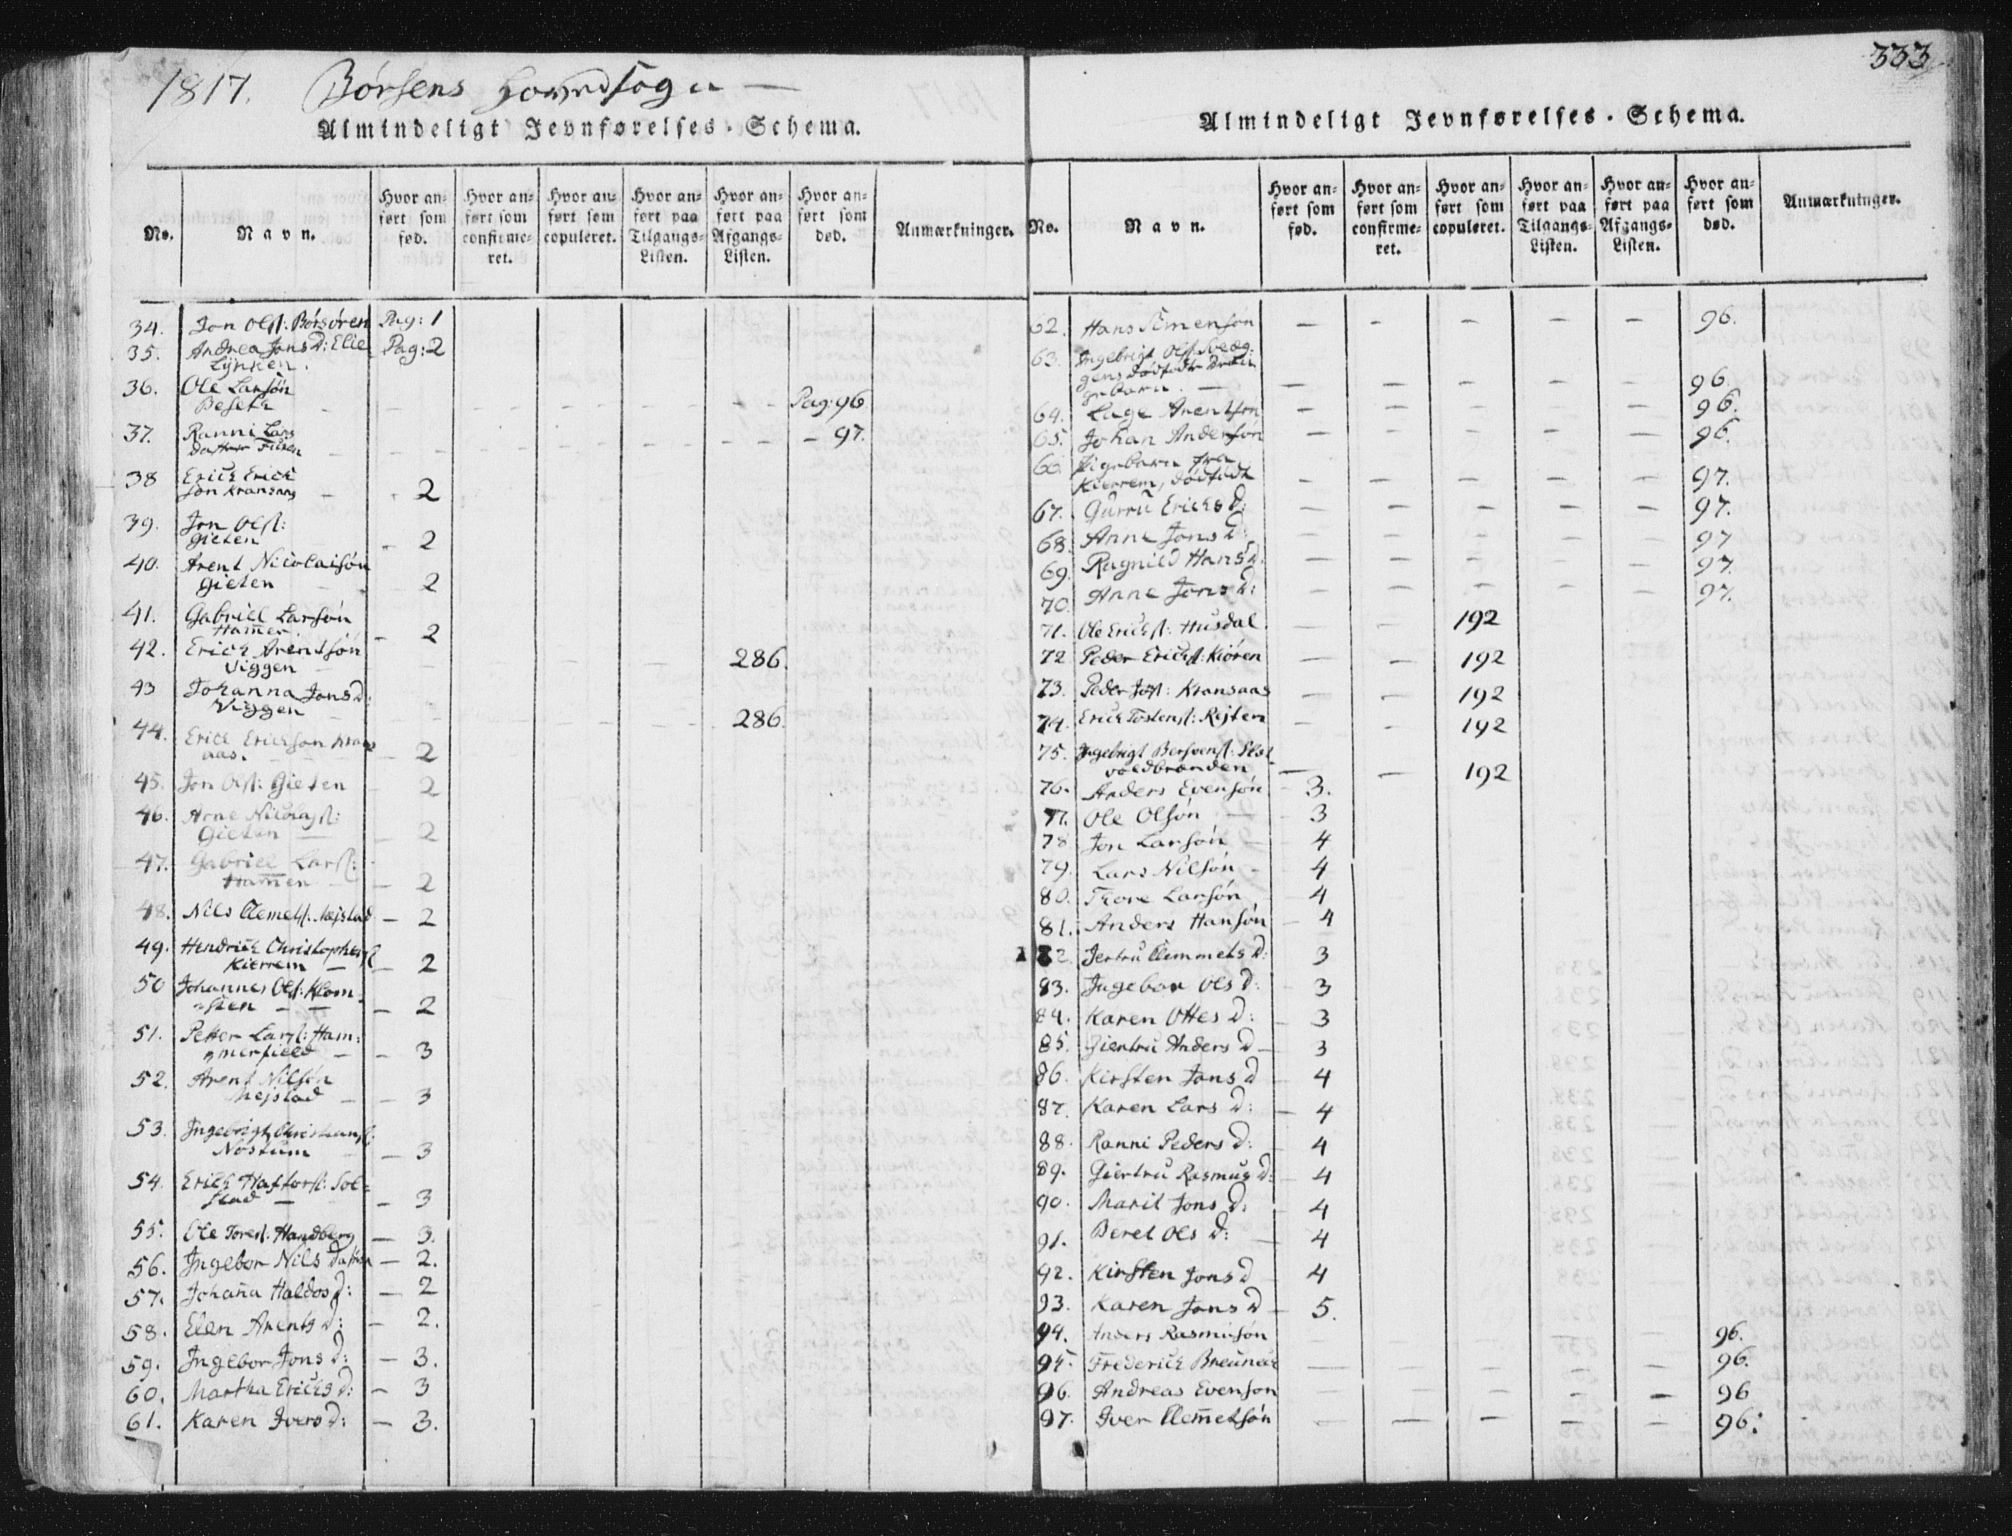 1817. Børsens Hovedsogn —
Almindeligt Jevnførelses-Schema.
No.
Navn.
Hvor anført som fød.
Hvor anført som confirmeret.
Hvor anført som copuleret.
Hvor anført paa Tilgangs-Listen.
Hvor anført paa Afgangs-Listen.
Hvor anført som død.
Anmærkninger.
34. Jon Ols: Børsøren Pag: 1
35. Andrea Jons D: Elie Pag: 2
Lynken.
36. Ole Larsøn
Beseth Pag: 96
37. Ranni Lars
datter 97.
38 Erick Erick
søn Kransaas 2
39. Jon Ols:
Gieten 2
40. Arent Nicolaisøn
Gieten 2
41. Gabriel Larsøn
Ham̄er. 2
42. Erick Arentsøn
Viggen 286.
43 Johanna Jons d:
Viggen 286.
44. Erick Erickson Krans
aas. 2
45. Jon Ols: Gieten 2
46. Arne Nicolays:
Gieten 2
47. Gabriel Lars:
Ham̄en 2
48. Nils Clemets: Mejstad 2
49. Hendrick Christophers
Kierrem 2
50 Johannes Ols: Klom
sten 2
51. Petter Lars: Ham:
merfield 3
52. Arent Nilsøn
Mejstad 3
53. Ingebrigt Christians:
Nøstum 3
54. Erick Haftors: Sol=
stad 3
55. Ole Tores: Handberg 3.
56. Ingebor Nils datter 2.
57. Johan̄a Haldos d: 2
58. Elen Arents d: 2.
59. Ingebor Jons d: 3.
60. Martha Ericks d: 3
61. Karen Ivers d: 3.
333
Almindeligt Jevnførelses-Schema.
No.
Navn.
Hvor anført som fød.
Hvor anført som confirmeret.
Hvor anført som copuleret.
Hvor anført paa Tilgangs-Listen.
Hvor anført paa Afgangs-Listen.
Hvor anført som død.
Anmærkninger.
62. Hans Simenson 96.
63. Ingebrigt Ols:
gens dødfødt Dren
gebarn. 96.
64. Lage Arentsøn 96.
65. Johan Andersøn 96.
66. Pigebarn fra
Kierrem, dødfødt 97.
67. Gurru Ericks d: 97.
68. Anne Jons d: 97
69. Ragnild Hans d: 97.
70. Anne Jons d: 97.
71. Ole Ericks: Husdal 192
72 Peder Ericks: Kiøren 192
73. Peder Jons: Kransaas 192
74. Erick Tostens: Rejten 192
75. Ingebrigt Bersvens:
voldbranden 192
76. Anders Evensøn 3.
77. Ole Olsøn 3
78 Jon Larsøn 4
79. Lars Nilsøn 4
80. Thore Larsøn 4
81. Anders Hansøn 4
82. Jertru Clemmets d: 3
83. Ingebor Ols d: 3
84. Karen Ottes d: 3
85. Giertru Anders d 3
86. Kirsten Jons d 4
87. Karen Lars d: 4
88. Ranni Peders d: 4
89. Giertru Rasmus d: 4
90. Marit Jons d: 4
91. Beret Ols d: 4
92. Kirsten Jons d 4
93. Karen Jons d 5.
94. Anders Rasmusøn 96.
95. Frederick Breuneck 96.
96. Andreas Evenson 96
97. Iver Clem̄etsøn 96.